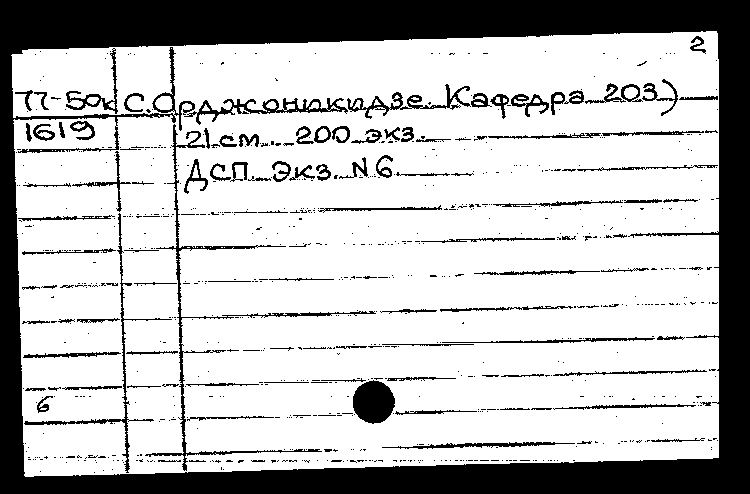 2
77-50к С.Орджоникидзе. Кафедра 203)
1619 21 см. 200 экз.
ДСП. Экз. N 6
6